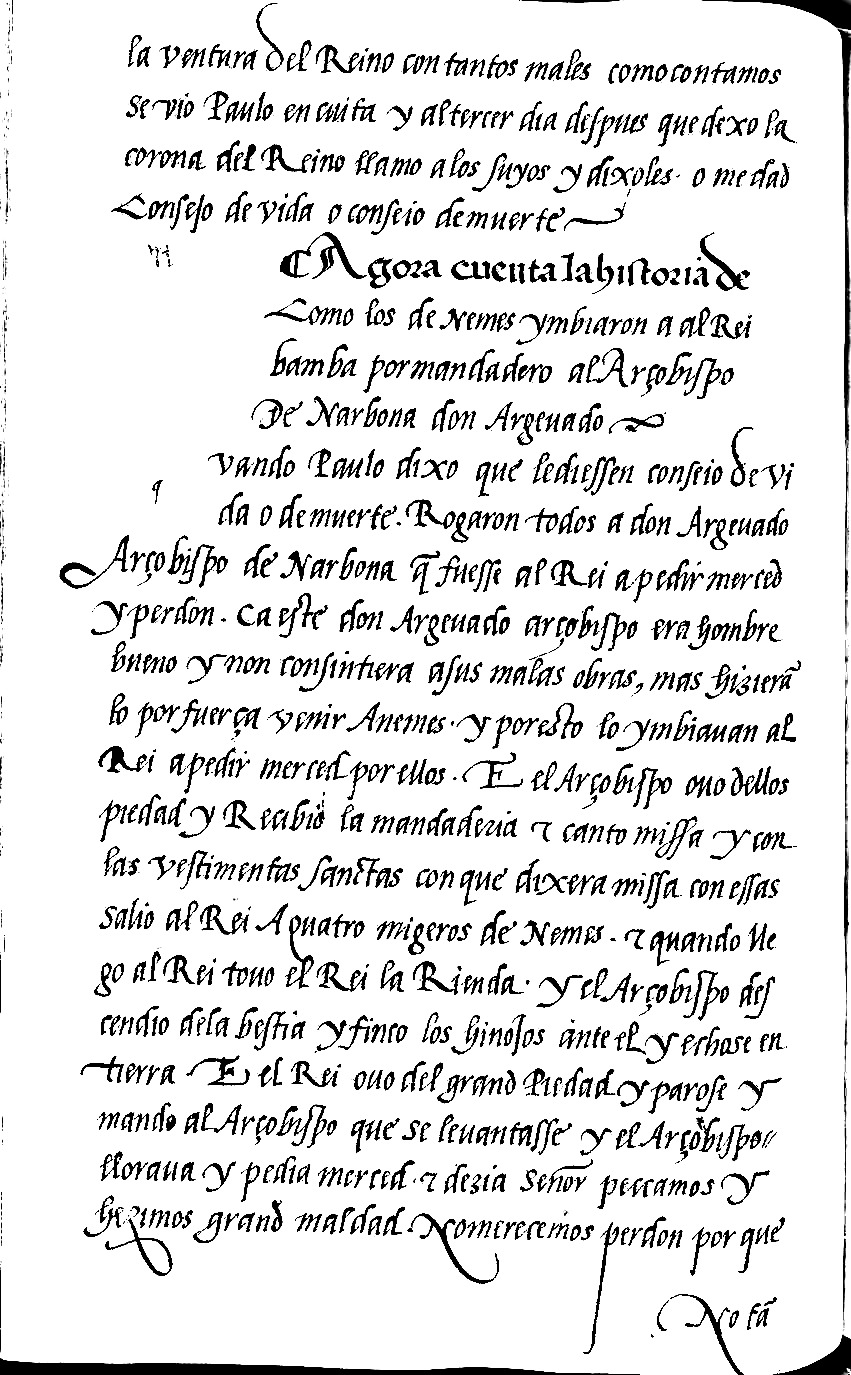 la ventura del Reino con tantos males como contamos
se vio Paulo en cuita y al tercer dia despues que dexo la
corona del Reino llamo a los suyos y dixoles. o me dad
Consejo de vida o conseio de muerte
Agora cuenta la historia de
Como los de Nemes ymbiaron a al Rei
bamba por mandadero al Arçobispo
De Narbona don Argeuado
vando Paulo dixo que le diessen conseio de vi
¶
da o de muerte. Rogaron todos a don Argeuado
Arçobispo de Narbona q̃ fuesse al Rei a pedir merced
y perdon. Ca este don Argeuado arçobispo era hombre
bueno y non consintiera a sus malas obras, mas hizierã
lo por fuerça venir A nemes. y por esto lo ymbiauan al
Rei a pedir merced por ellos. E el Arçobispo ouo dellos
piedad y Recibio la mandaderia ⁊ canto missa y con
las vestimentas sanctas con que dixera missa con essas
salio al Rei A quatro migeros de Nemes. ⁊ quando lle
go al Rei touo el Rei la Rienda. y el Arçobispo des
cendio de la bestia y finco los hinojos ante el y echose en
tierra. E el Rei ouo del grand Piedad y parose y
mando al Arçobispo que se leuantasse y el Arçobispo//
lloraua y pedia merced. ⁊ dezia señor peccamos y
hezimos grand maldad. No merecemos perdon por que
No fã